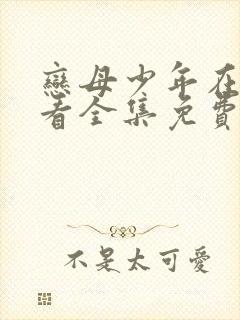 戀母少年在
看全集免費
不是太可愛